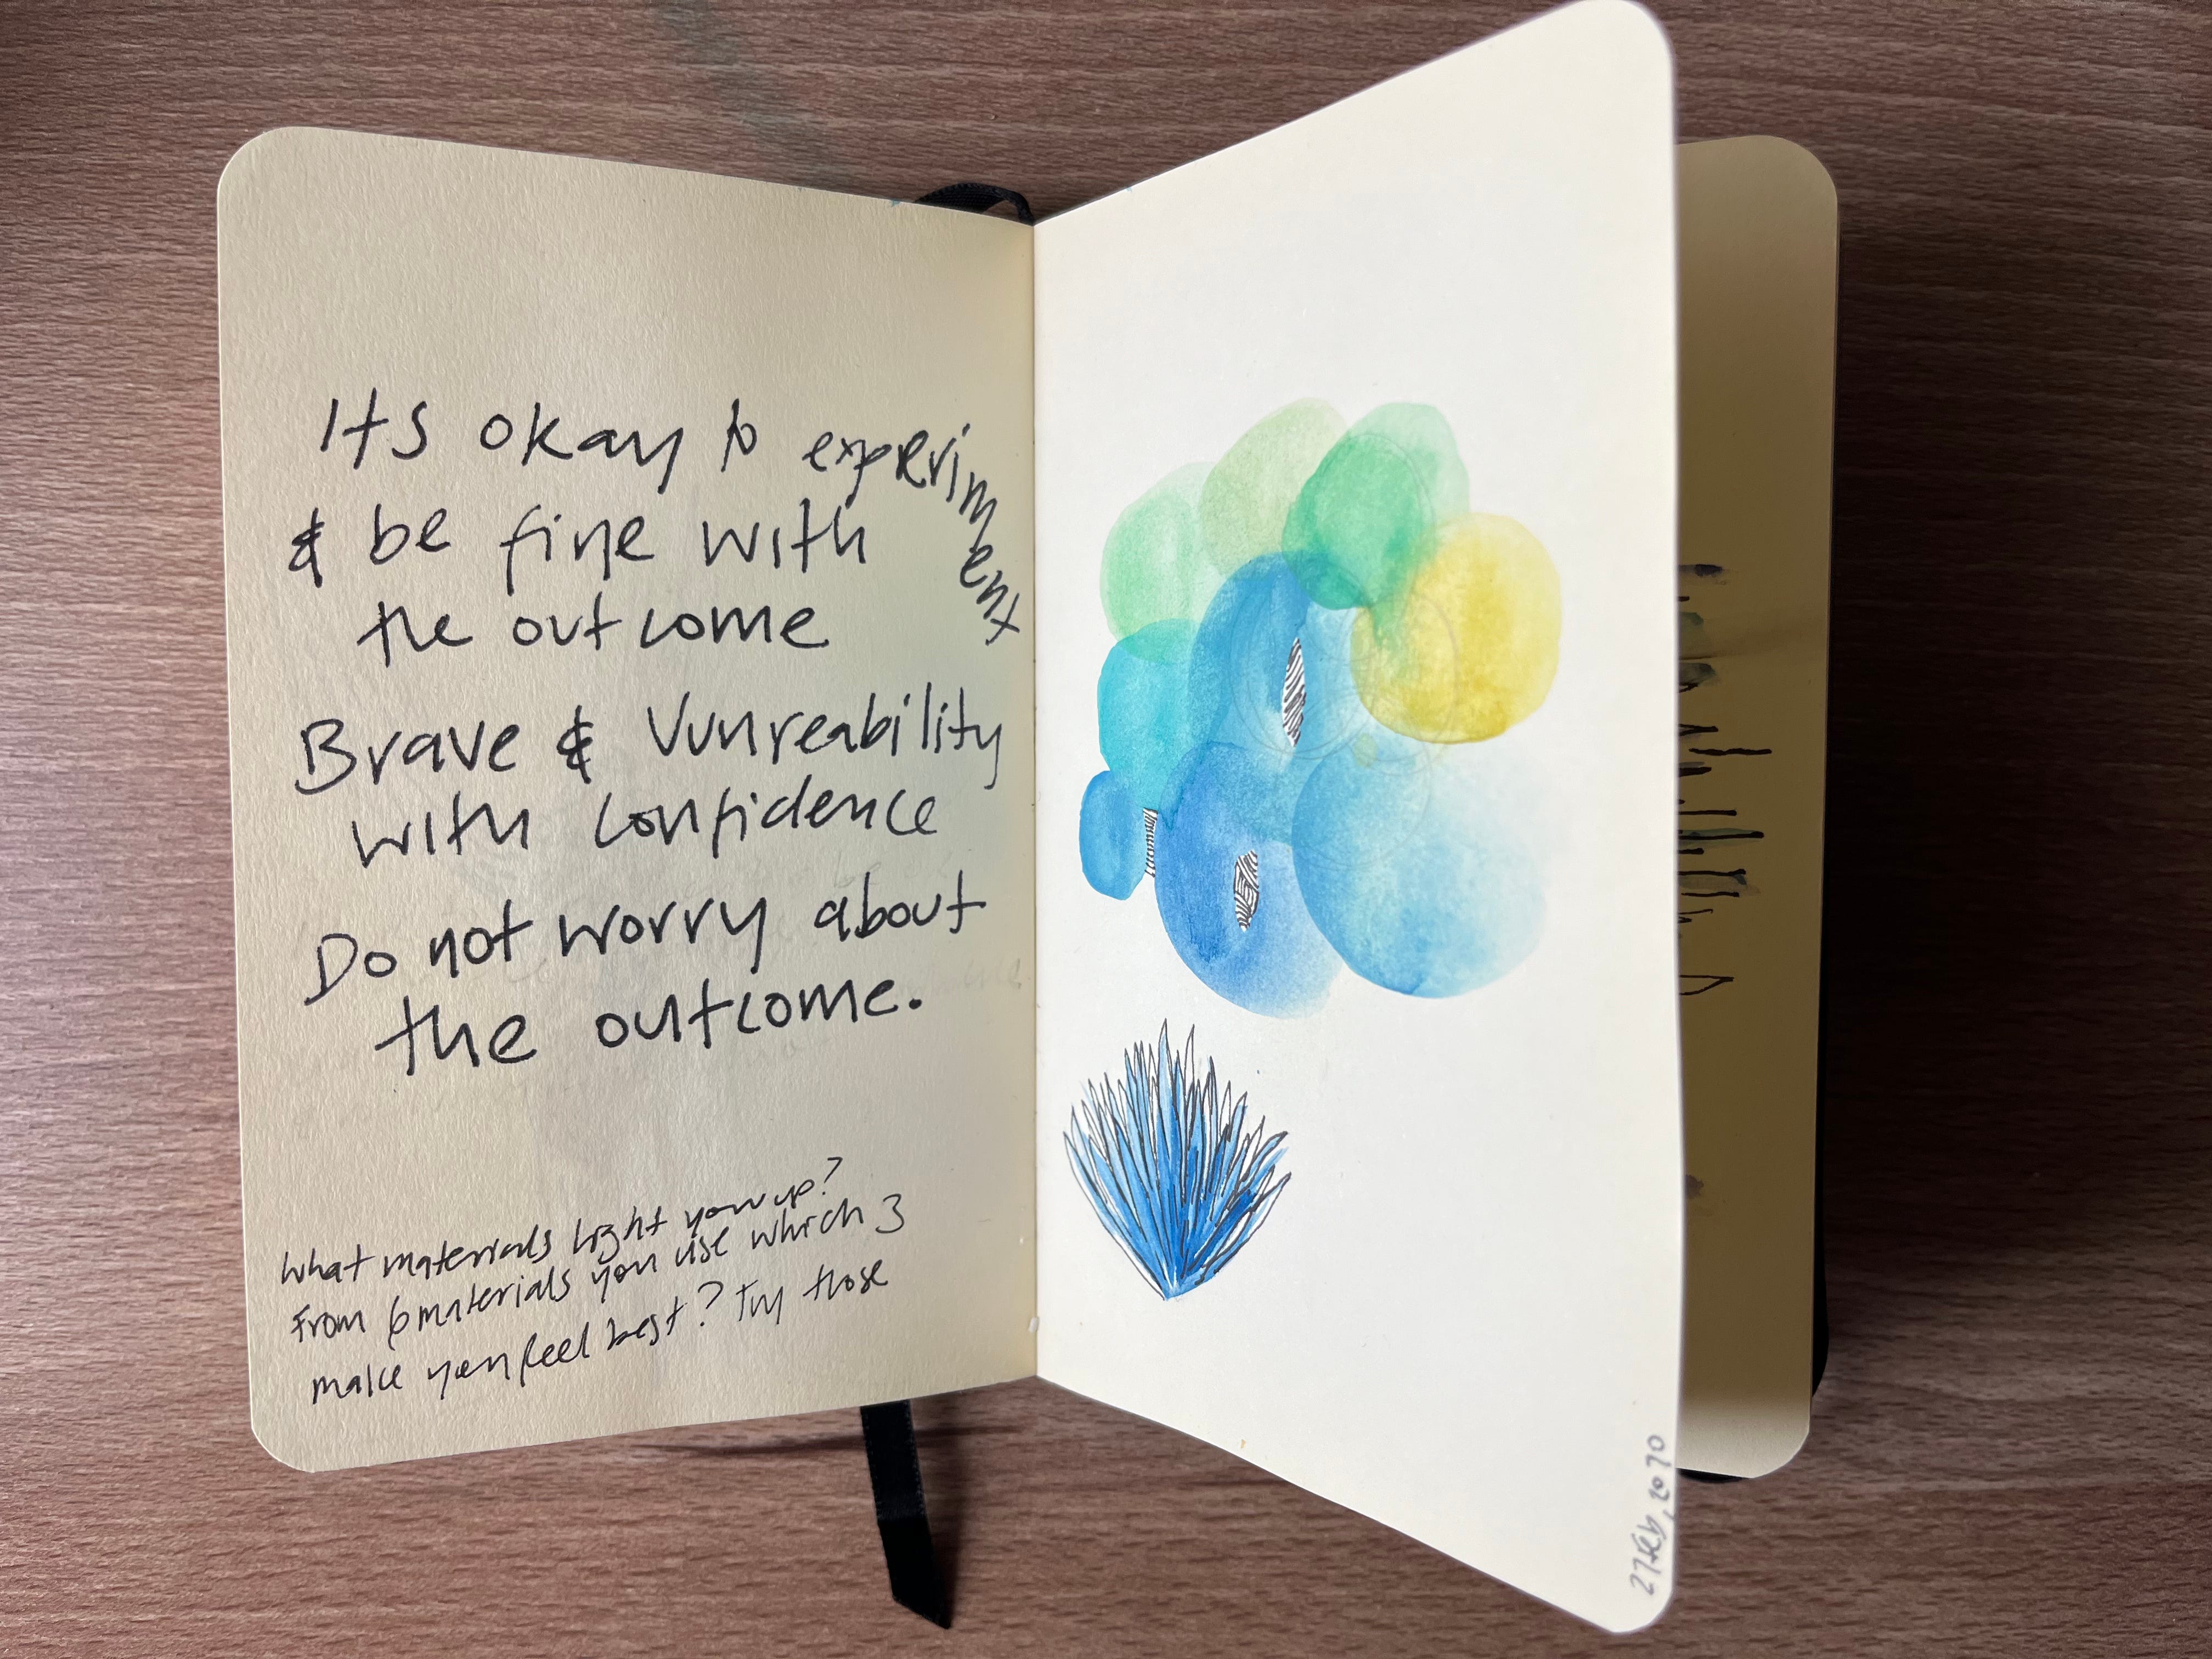 Its okay to experiment
& be fine with
the outcome
Brave & Vunreability
with confidence
Do not worry about
the outcome.
What materials light you up?
From 6 materials you use which 3
make you feel best? Try those
27 Feb, 2020